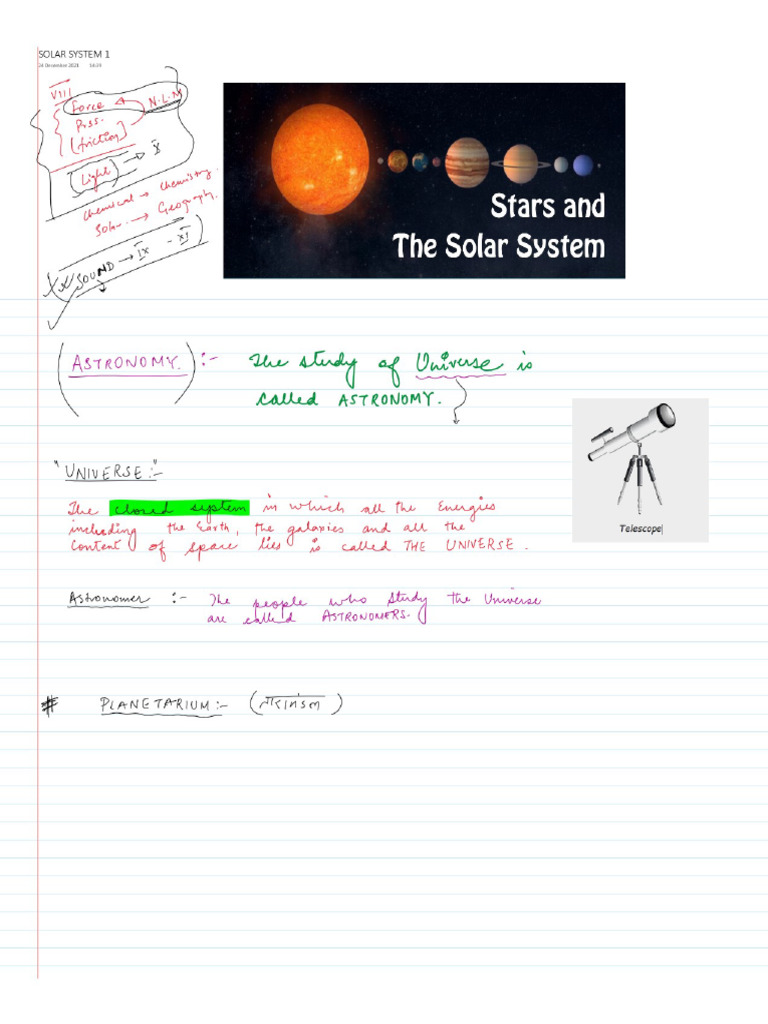 SOLAR SYSTEM 1
24 December 2021 14:39
VIII
Force N.L.M
Pess.
[friction]
Light → X
Chemical → Chemistry.
Solar.. → Geography.
SOUND → IX - XI
Stars and
The Solar System
ASTRONOMY. :- The study of Universe is
called ASTRONOMY.
"UNIVERSE:-"
The closed system in which all the Energies
including the Earth, the galaxies and all the
Content of space lies is called THE UNIVERSE.
Telescope
Astronomer :- The people who study the Universe
are called ASTRONOMERS.
# PLANETARIUM:- ( )